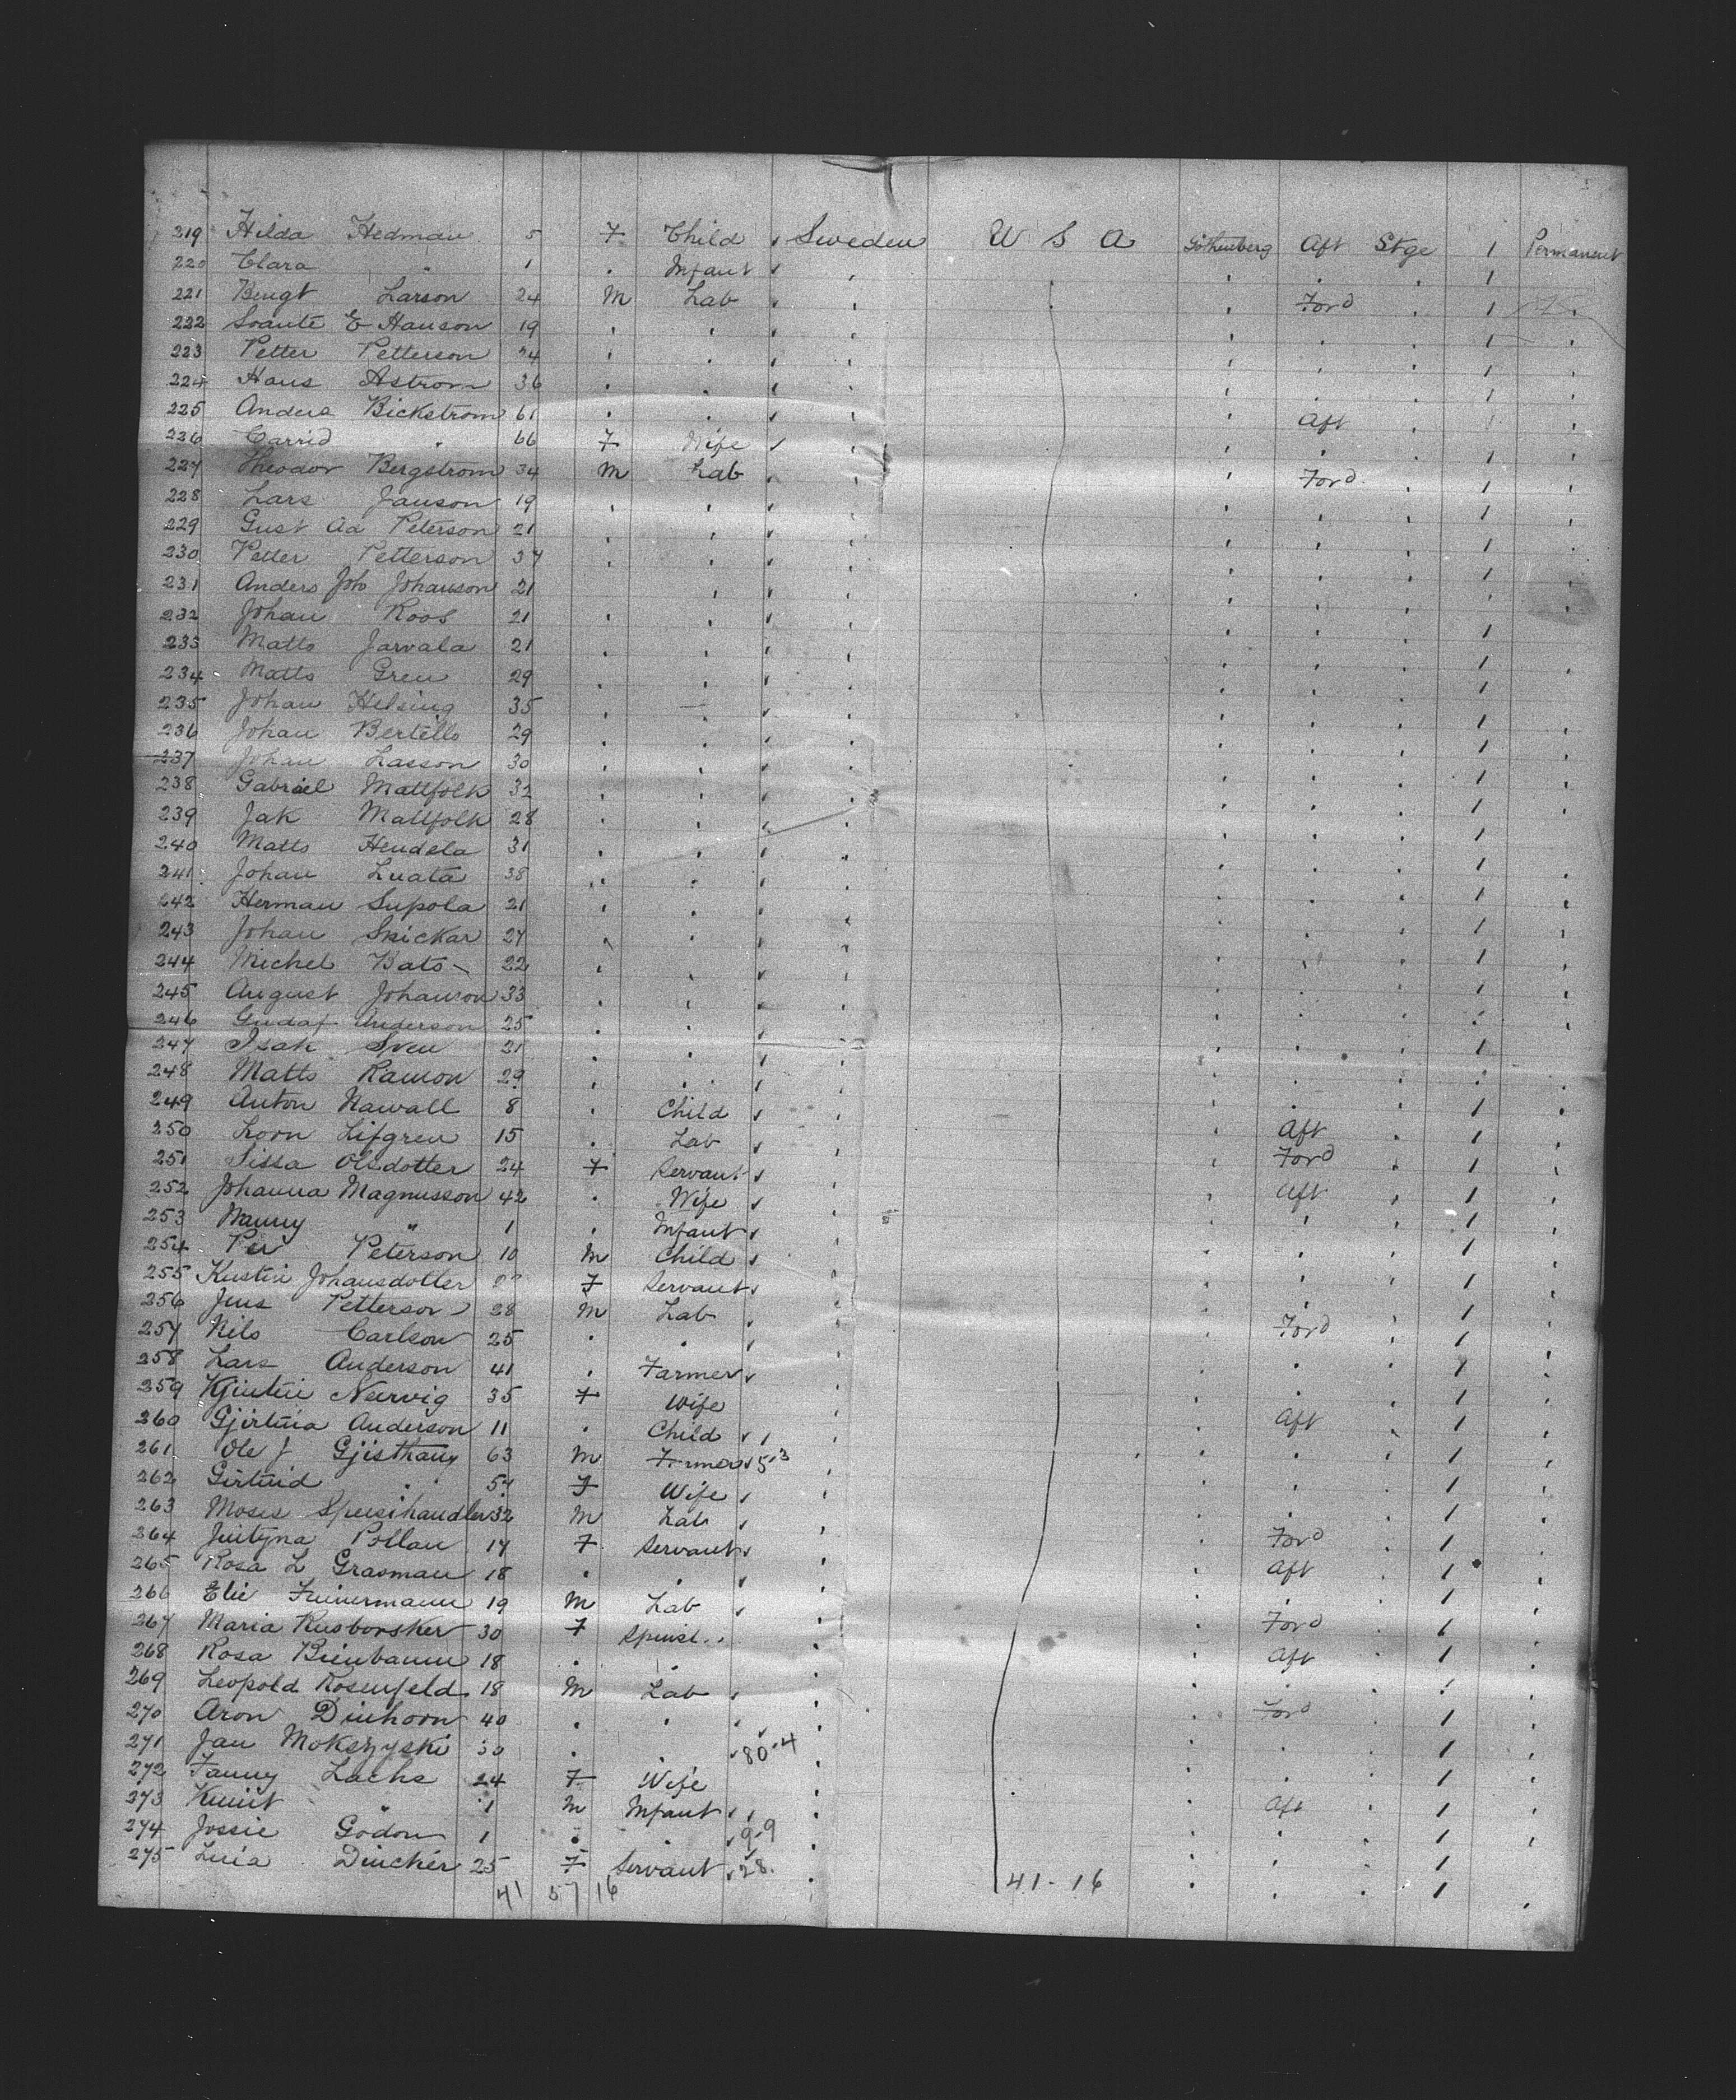 219 Hilda Hedman 5 F Child Sweden U S A Gothenberg Aft Stge 1 Permanent
220 Clara " 1 . Infant
221 Bengt Larson 24 M Lab Ford 1
222 Svante E Hanson 19
223 Petter Petterson 24 1
224 Hans Astrom 36 1
225 Anders Bickstrom 61 Aft
226 Carrid " 66 F Wife 1
227 Theodor Bergstrom 34 M Lab Ford 1
228 Lars Janson 19 1
229 Gust Ad Peterson 21 1
230 Petter Petterson 37 1
231 Anders Joh Johanson 21
232 Johan Roos 21 1
233 Matts Jarvala 21 1
234 Matts Gren 29 1
235 Johan Helsing 35 1
236 Johan Bertells 29 1
237 Johan Lasson 30 1
238 Gabriel Mattfolk 32 1
239 Jak Mattfolk 28 1
240 Matts Hendela 31 1
241 Johan Luata 38 1
242 Herman Supola 21 1
243 Johan Snickar 27 1
244 Michel Bats 22 1
245 August Johanson 33
246 Gustaf Anderson 25 1
247 Isak Sven 21
248 Matts Ramon 29 1
249 Anton Nawall 8 Child Aft 1
250 Lifgren 15 Lab Ford 1
251 Sissa Olsdotter 24 F Servant Aft 1
252 Johanna Magnusson 42 Wife 1
253 Nanny " 1 Infant 1
254 Per Peterson 10 M Child 1
255 Johansdotter F Servant 1
256 Jens Petterson 28 M Lab Ford 1
257 Nils Carlson 25 1
258 Lars Anderson 41 Farmer 1
259 Nervig 35 F Wife Aft 1
260 Anderson 11 Child 1
261 Ole J 63 M Farmer 5.3
262 " 54 F Wife 1
263 Moses 32 M Lab Ford 1
264 Pollan 17 F Servant Aft 1
265 Rosa L Grasman 18 1
266 Elie 19 M Lab Ford 1
267 Maria 30 F Aft 1
268 Rosa Bienbaum 18
269 Leopold Rosenfeld 18 M Lab Ford 1
270 Aron Dinhorn 40 1
271 Jan Mokszyski 30 80.4 1
272 Fanny Lachs 24 F Wife Aft 1
273 " 1 M Infant 1
274 Jossie Godon 1 9.9 1
275 25 F Servant 28. 1
41 57 16 41 - 16